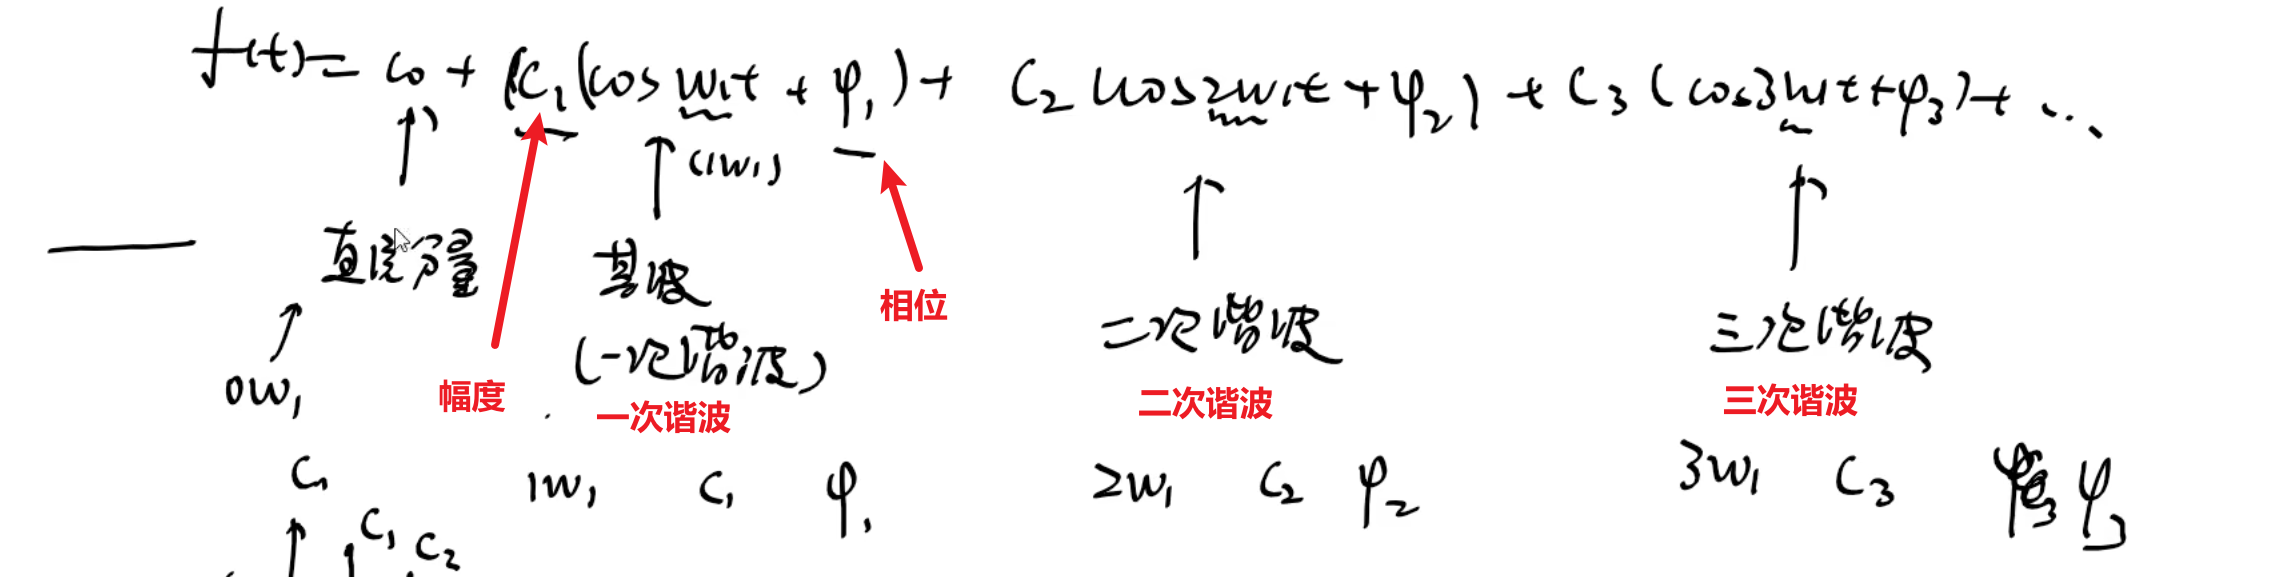 f(t) = c₀ + (C₁(cos w₁t + φ₁) + C₂(cos2w₁t + φ₂) + C₃(cos3w₁t + φ₃) + ...
(1w₁)
直流分量
基波
(一次谐波)
相位
二次谐波
三次谐波
0w₁
幅度
一次谐波
二次谐波
三次谐波
C₁
1w₁ C₁ φ₁
2w₁ C₂ φ₂
3w₁ C₃ φ₃
C₁ C₂